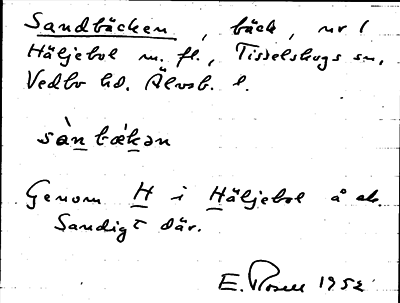 Sandbäcken, bäck, nr 1
Häljebol m. fl., Tisselskogs sn,
Vedbo hd. Älvsb. l.
sàn bækən
Genom H i Häljebol å ab.
Sandigt där.
E. Rosell 1952